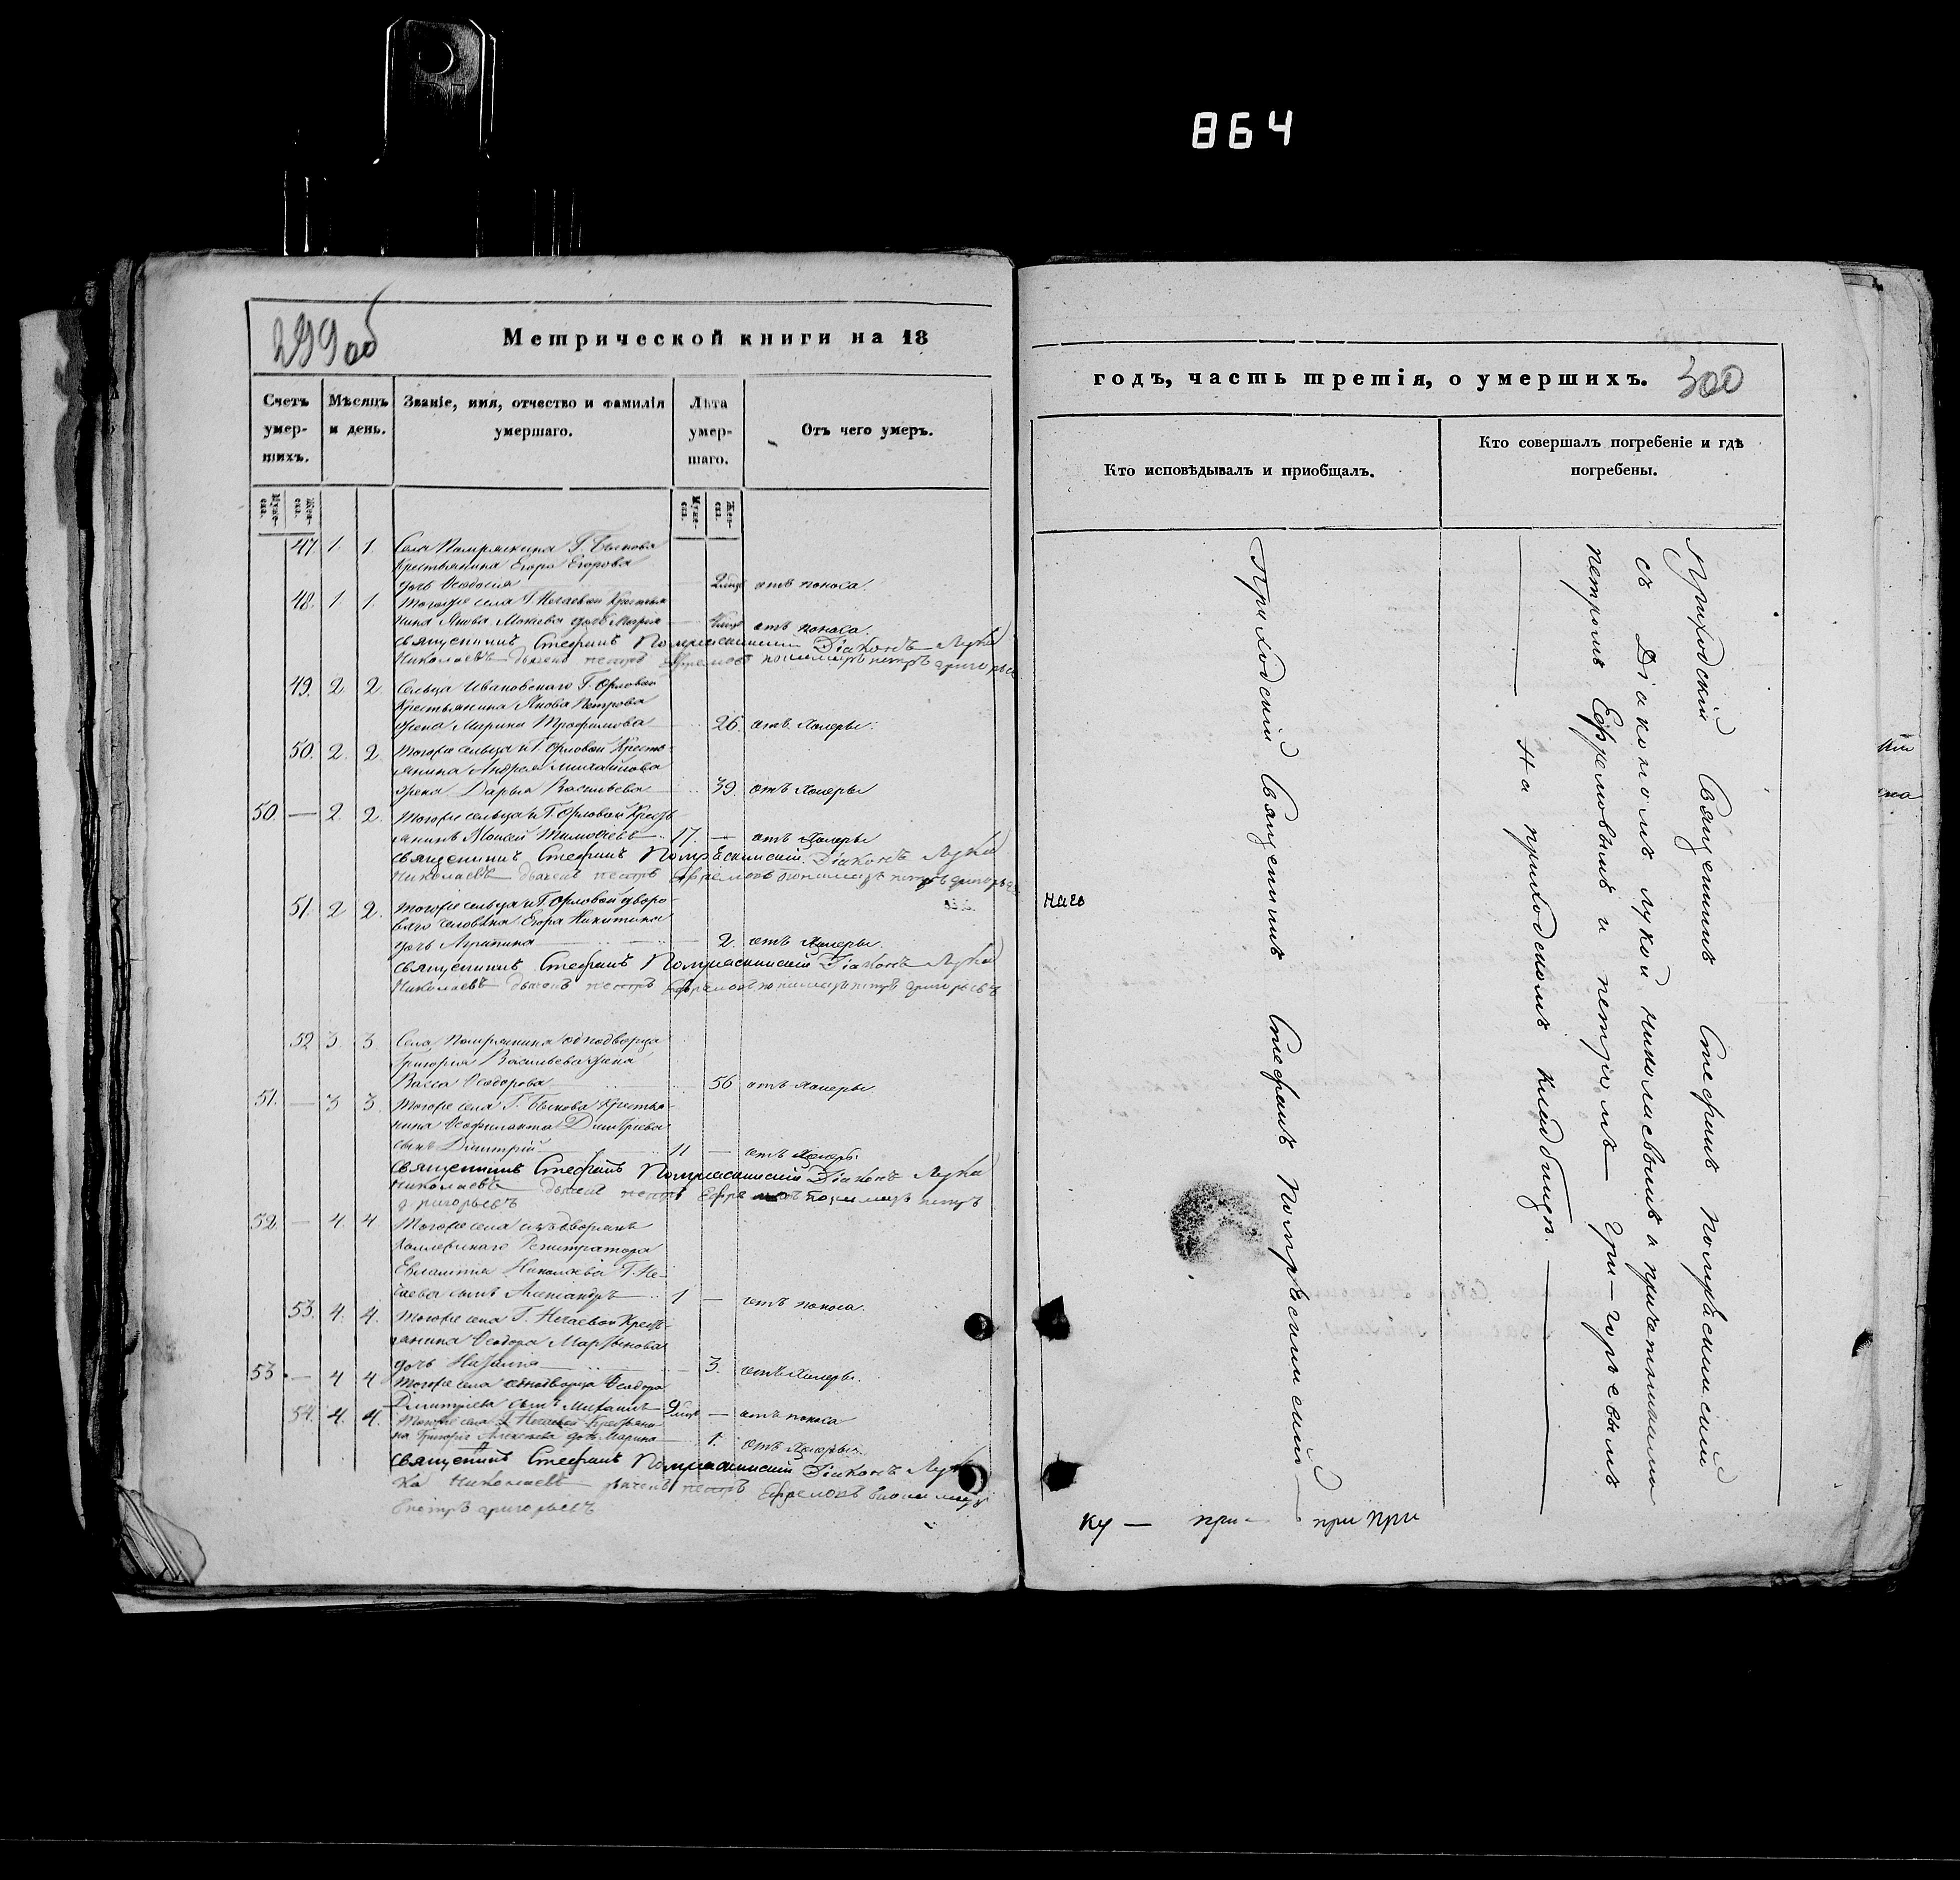 864
299об
Метрической книги на 18
Счетъ умер-шихъ.
Мѣсяцъ и день.
Званіе, имя, отчество и фамилія умершаго.
Лѣта умер-шаго.
Отъ чего умеръ.
Муже-ска.
Жен-ска.
Муже-ска.
Жен-ска.
47 1. 1. Села Помряскина Г. Быкова
Крестьянина Егора Егорова
дочь Ѳеодосія 2 мцъ отъ поноса.
48. 1. 1. Тогоже села Г. Нечаевой Крестья
нина Якова Мокіева дочь Марія отъ поноса.
священникъ Стефанъ Помряскинскій Діаконъ Лука
Николаевъ дьячекъ петръ Ефремовъ пономарь петръ григорьев
49. 2. 2. Сельца Ивановскаго Г. Орловой
Крестьянина Якова Петрова
жена Марина Трофимова 26. отъ холеры.
50. 2. 2. Тогоже сельца и Г. Орловой Кресть-
янина Андрея Михайлова
жена Дарья Васильева 39. отъ холеры
50. — 2. 2. Тогоже сельца и Г. Орловой Кресть
янинъ Моисей Тимоѳеевъ 17. — отъ холеры
священникъ Стефанъ Помряскинскій Діаконъ Лука
Николаевъ дьячекъ петръ Ефремовъ пономарь петръ григорьев
51. 2 2. Тогоже сельца и Г. Орловой дворо-
ваго человѣка Егора Никитина
дочь Агрипина 2. отъ холеры.
священникъ Стефанъ Помряскинскій Діаконъ Лука
Николаевъ дьячекъ петръ Ефремовъ пономарь петръ григорьевъ
52 3 3. Села Помряскина однодворца
Григорія Васильева жена
Васса Ѳеодорова 56 отъ холеры.
51. — 3 3. Тогоже села Г. Быкова Крестья-
нина Ѳеофилакта Димтріева
сынъ Димитрій 11 — отъ холеры.
священникъ Стефанъ Помряскинскій Діаконъ Лука
Николаевъ дьячекъ петръ Ефремовъ пономарь петръ
григорьевъ
52. — 4. 4 Тогоже села изъ дворянъ
Коллежскаго Регитратора
Евлампія Николаева Г. Не-
чаева сынъ Александръ 1 — отъ поноса.
53. 4. 4. Тогоже села Г. Нечаевой Кресть-
янина Ѳеодора Мартынова
дочь 3. отъ холеры.
53. — 4 4 Тогоже села однодворца Ѳеодора
Димитріева сынъ Михаилъ 9 мцъ — отъ поноса
54. 4. 4. Тогоже села Г. Нечаевой Крестьяни-
на Григорія Алексѣева дочь Марина 1. отъ холеры.
священникъ Стефанъ Помряскинскій Діаконъ Лу
ка Николаевъ дьячекъ петръ Ефремовъ пономарь
петръ григорьевъ
годъ, часть третія, о умершихъ.
300
Кто исповѣдывалъ и пріобщалъ.
Кто совершалъ погребеніе и гдѣ погребены.
Приходскій Священникъ Стефанъ Помряскинскій
Приходскій Священникъ Стефанъ Помряскинскій
съ Діакономъ лукой николаевымъ и причетниками
петромъ Ефремовымъ и петромъ — григорьевымъ
— На приходскомъ кладбищѣ.
наго
ку — при — при при